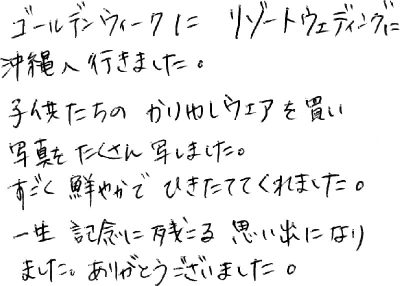 ゴールデンウィークに リゾートウェディングに
沖縄へ行きました。
子供たちの かりゆしウェアを買い
写真をたくさん写しました。
すごく鮮やかで ひきたててくれました。
一生 記念に残こる 思い出になり
ました。ありがとうございました。